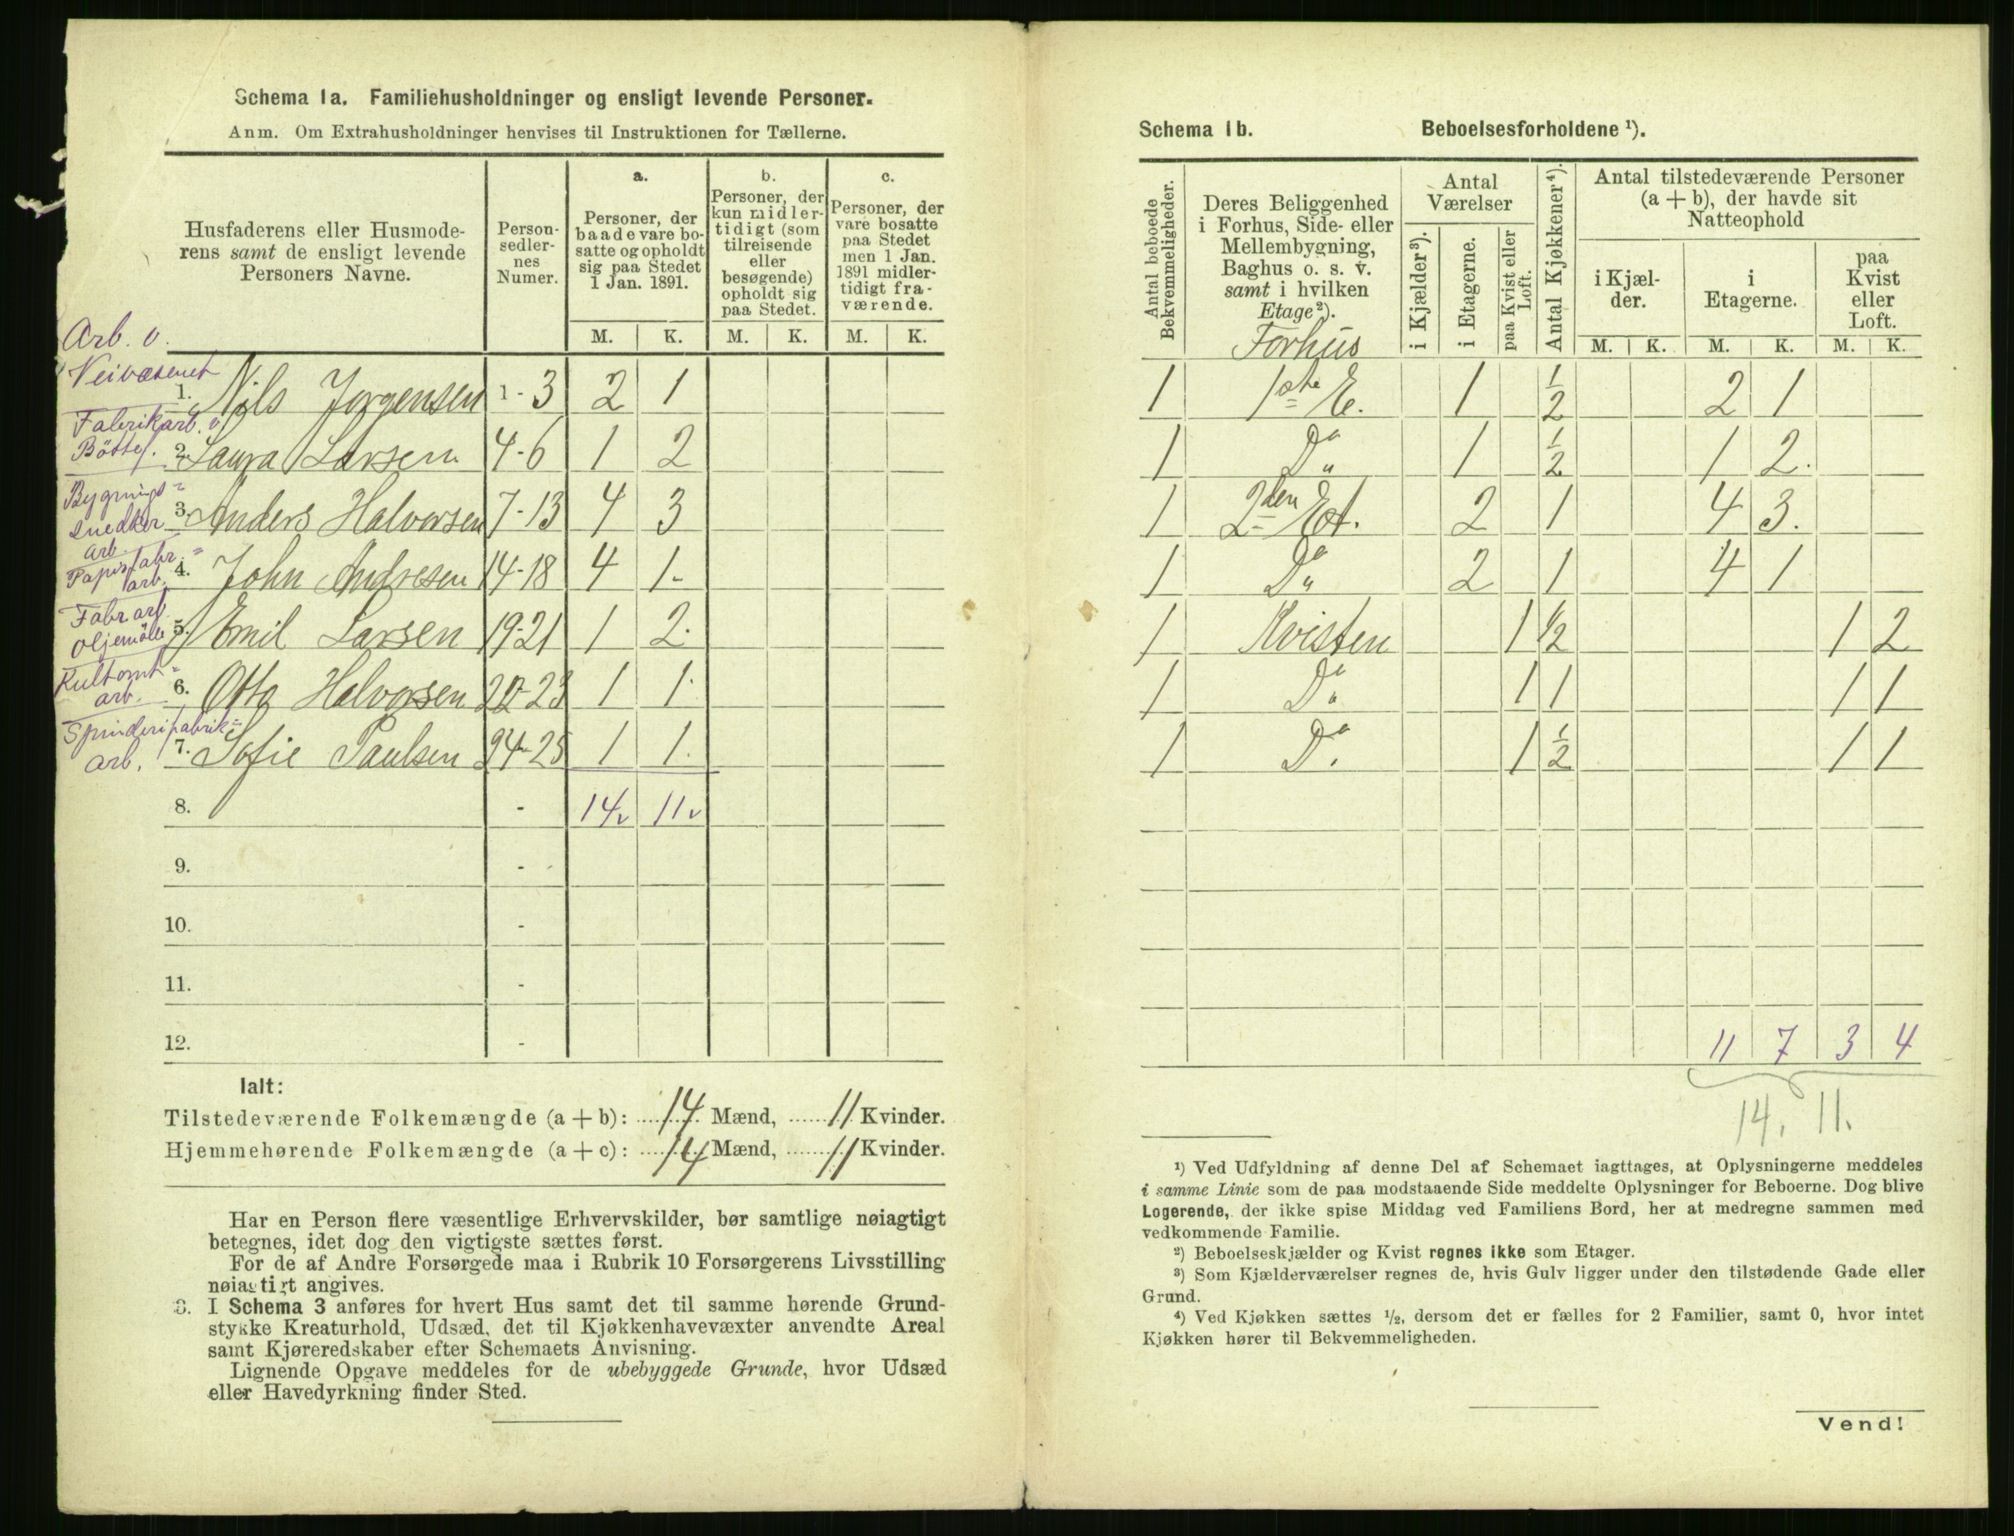 Schema 1a. Familiehusholdninger og ensligt levende Personer.
Anm. Om Extrahusholdninger henvises til Instruktionen for Tællerne.
Husfaderens eller Husmode-
rens samt de ensligt levende
Personers Navne.
Person-
sedler-
nes
Numer.
a.
Personer, der
baade vare bo-
satte og opholdt
sig paa Stedet
1 Jan. 1891.
b.
Personer, der
kun midler-
tidigt (som
tilreisende
eller
besøgende)
opholdt sig
paa Stedet.
c.
Personer, der
vare bosatte
paa Stedet
men 1 Jan.
1891 midler-
tidigt fra-
værende.
M. K. M. K. M. K.
Arb. v.
Veivæsenet
1. Nils Jørgensen 1-3 2 1
Fabrikarb. v
Böttef.
2. Laura Larsen 4-6 1 2
Bygnings=
snedker
3. Anders Halvorsen 7-13 4 3
arb.
Papirfabr.=
arb.
4. John Andresen 14-18 4 1-
Fabr arb.
Oljemölle
5. Emil Larsen 19-21 1 2.
arb.
6. Otto Halvorsen 22-23 1 1.
Spinderifabrik=
arb.
7. Sofie Paulsen 24-25 1 1.
8. - 14v 11v
9. -
10. -
11. -
12. -
Ialt:
Tilstedeværende Folkemængde (a + b): 14 Mænd, 11 Kvinder.
Hjemmehørende Folkemængde (a + c): 14 Mænd, 11 Kvinder.
Har en Person flere væsentlige Erhvervskilder, bør samtlige nøiagtigt
betegnes, idet dog den vigtigste sættes først.
For de af Andre Forsørgede maa i Rubrik 10 Forsørgerens Livsstilling
nøiagtigt angives.
3. I Schema 3 anføres for hvert Hus samt det til samme hørende Grund-
stykke Kreaturhold, Udsæd, det til Kjøkkenhavevæxter anvendte Areal
samt Kjøreredskaber efter Schemaets Anvisning.
Lignende Opgave meddeles for de ubebyggede Grunde, hvor Udsæd
eller Havedyrkning finder Sted.
Schema 1b. Beboelsesforholdene ¹).
Antal beboede
Bekvemmeligheder.
Deres Beliggenhed
i Forhus, Side- eller
Mellembygning,
Baghus o. s. v.
samt i hvilken
Etage²).
Antal
Værelser
i Kjælder³).
i Etagerne.
paa Kvist eller
Loft.
Antal Kjøkkener⁴).
Antal tilstedeværende Personer
(a + b), der havde sit
Natteophold
i Kjæl-
der.
i
Etagerne.
paa
Kvist
eller
Loft.
M. K. M. K. M. K.
Forhus
1 1ste E. 1 ½ 2 1
1 Do 1 ½ 1 2.
1 2den Et. 2 1 4 3.
1 Do 2 1 4 1
1 Kvisten 1 ½ 1 2
1 Do 1 1 1 1
1 Do 1 ½ 1 1
11 7 3 4
14. 11.
¹) Ved Udfyldning af denne Del af Schemaet iagttages, at Oplysningerne meddeles
i samme Linie som de paa modstaaende Side meddelte Oplysninger for Beboerne. Dog blive
Logerende, der ikke spise Middag ved Familiens Bord, her at medregne sammen med
vedkommende Familie.
²) Beboelseskjælder og Kvist regnes ikke som Etager.
³) Som Kjælderværelser regnes de, hvis Gulv ligger under den tilstødende Gade eller
Grund.
⁴) Ved Kjøkken sættes ½, dersom det er fælles for 2 Familier, samt 0, hvor intet
Kjøkken hører til Bekvemmeligheden.
Vend!